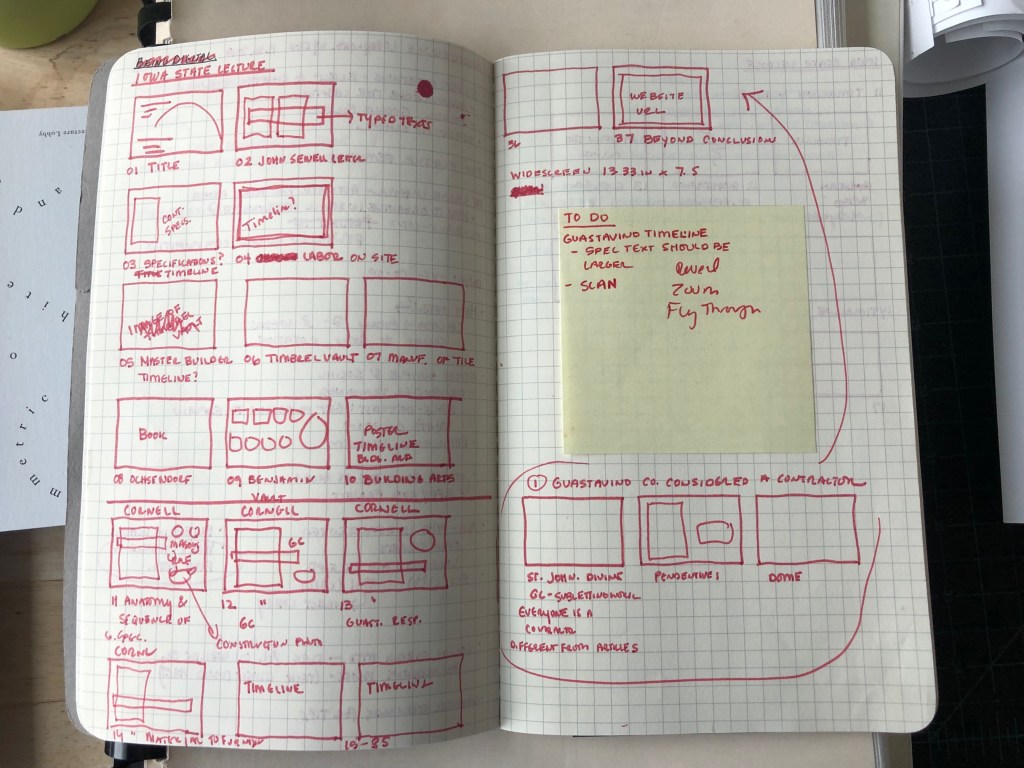 IOWA STATE LECTURE
→ TYPED TEXTS
01 TITLE
02 JOHN SEWELL LETTER
CONT. SPECS.
TIMELINE?
03 SPECIFICATIONS?
TIMELINE
04 LABOR ON SITE
IMAGE OF
VAULT
05 MASTER BUILDER
TIMELINE?
06 TIMBREL VAULT
07 MANUF. OF TILE
BOOK
POSTER
TIMELINE
BLDG. ARD
08 OCHSENDORF
09 BENJAMIN
VAULT
10 BUILDING ARTS
CORNELL
CORNELL
CORNELL
GC
11 ANATOMY &
SEQUENCE OF
12 "
GC
13 "
GUAST. RESP.
CONSTRUCTION PHOTO
TIMELINE
TIMELINE
14 " MATERIAL TO
15-35
36
WEBSITE
URL
37 BEYOND CONCLUSION
WIDESCREEN 13.33 IN X 7.5
TO DO
GUASTAVINO TIMELINE
- SPEC TEXT SHOULD BE
LARGER
- SCAN
Zoom
Fly Through
① GUASTAVINO CO. CONSIDERED A CONTRACTOR
ST. JOHN. DIVINE
GC - SUBLETTING WORK
EVERYONE IS A
PENDENTIVE
DOME
DIFFERENT FROM ARTICLES